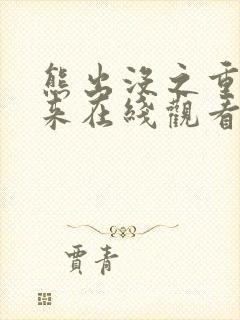 熊出沒之重
來在綫觀看
賈青